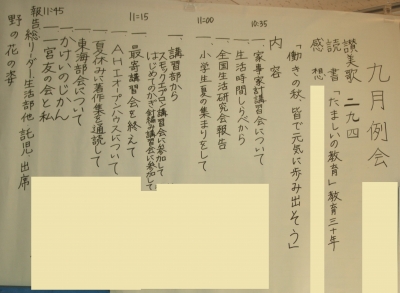 九月例会
讃美歌 二九四
読書 「たましいの教育」教育三十年
感想
「働きの秋、皆で元気に歩み出そう」
内容
10:35
一、家事家計講習会について
一、生活時間しらべから
一、全国生活研究会報告
11:00
一、小学生夏の集まりをして
一、講習部から
スモックエプロン講習会に参加して
はじめてのかぎ針編み講習会に参加して
11:15
一、最寄講習会を終えて
一、AHエオープンハウスについて
一、夏休みに著作集を通読して
一、東海部会について
一、かけいのじかん
一、一宮友の会と私
11:45
報告 総リーダー 生活部 他 託児 出席
野の花の姿